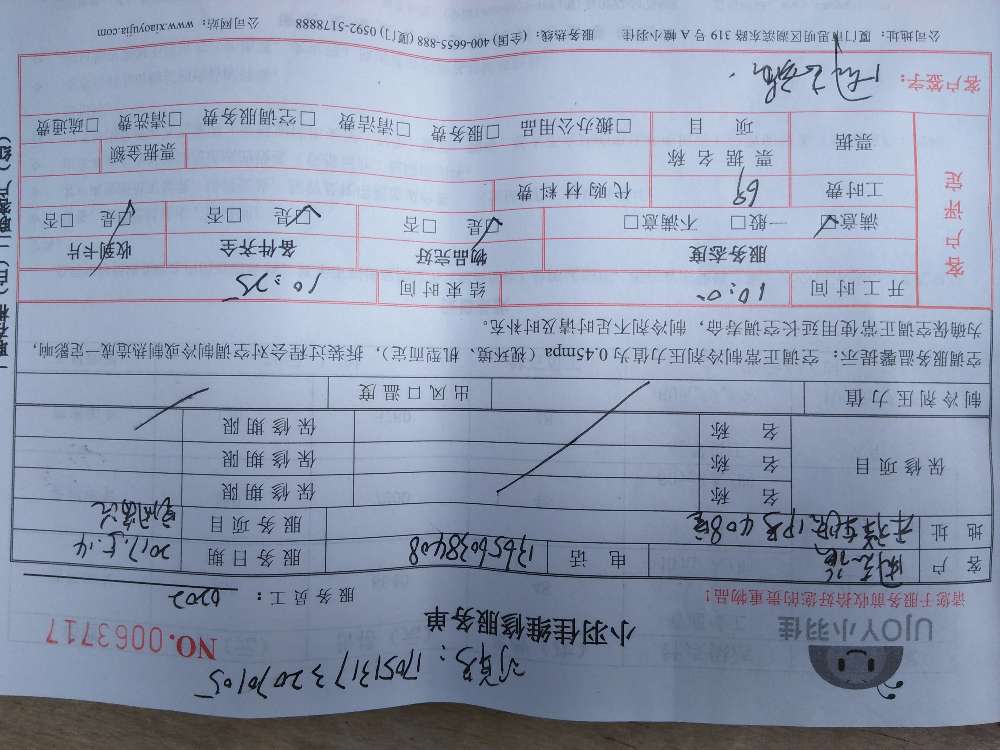 订单号：1705131732070105
UJOY小羽佳
小羽佳维修服务单
NO. 0063717
请您于服务前收拾好您的贵重物品!
服务员工：0202
客 户 电 话 13656038408 服务日期 2017.5.14
地 址 1号408室 服务项目 空调清洗
保修项目 名 称 保修期限
名 称 保修期限
名 称 保修期限
制冷剂压力值 出风口温度
空调服务温馨提示：空调正常制冷剂压力值为0.45mpa（视环境、机型而定），拆装过程会对空调制冷或制热造成一定影响，
为确保空调正常使用延长空调寿命，制冷剂不足时请及时补充。
客户评定
开工时间 10:00 结束时间 10:25
服务态度 物品完好 备件齐全 收到卡片
满意☑ 一般□ 不满意□ ☑是 □否 ☑是 □否 ☑是 □否
工时费 69 代购材料费
票据 票据名称 票据金额
项 目 □搬办公用品 □服务费 □清洁费 □空调服务费 □清洗费 □疏通费
客户签字：
公司地址：厦门市思明区湖滨东路319号A幢小羽佳 服务热线：(全国) 400-6655-888 (厦门) 0592-5178888 公司网站：www.xiaoyujia.com